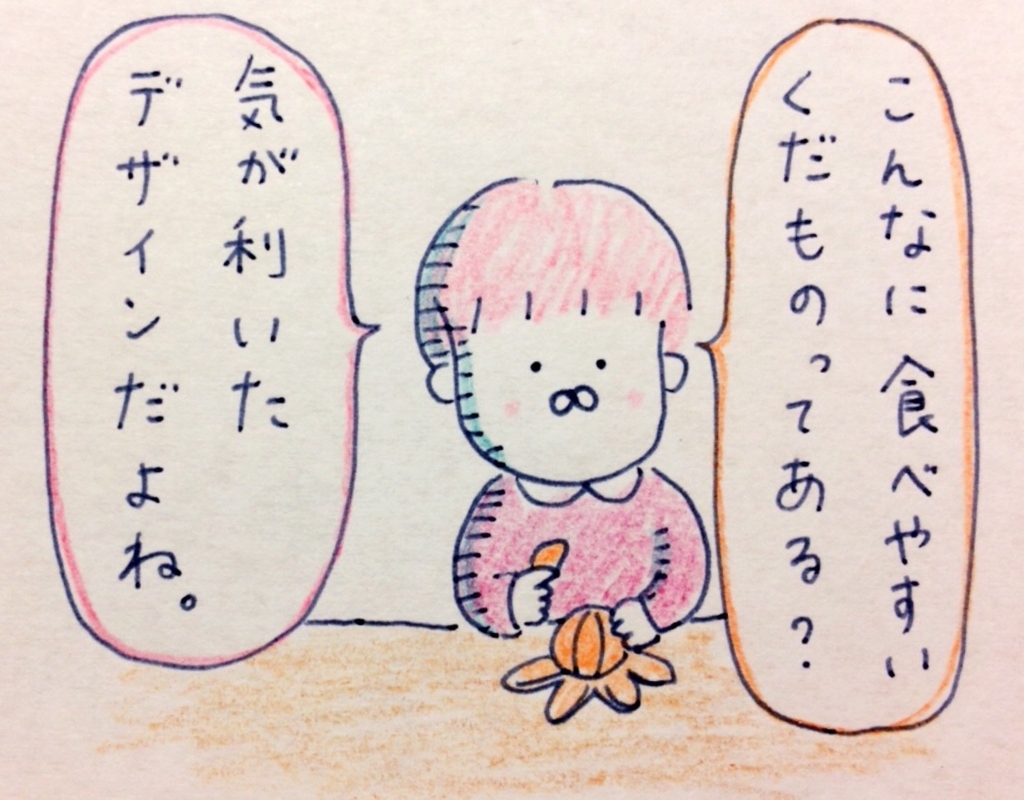 こんなに食べやすい
くだものってある?
気が利いた
デザインだよね。